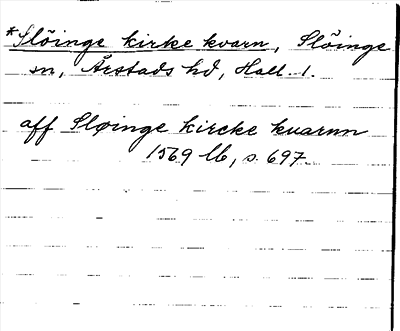 *Slöinge kirke kvarn, Slöinge
sn, Årstads hd, Hall. l.
aff Sløinge kircke kuarnn
1569 lb, s. 697.